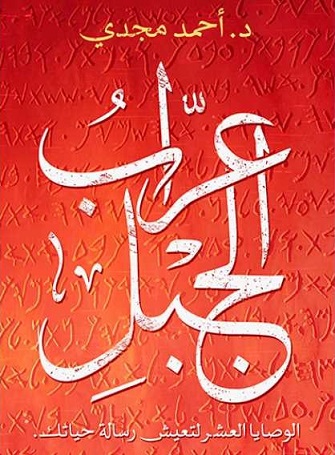 د. أحمد مجدي
عرّابُ
الجبلِ
الوصايا العشر لتعيش رسالة حياتك.